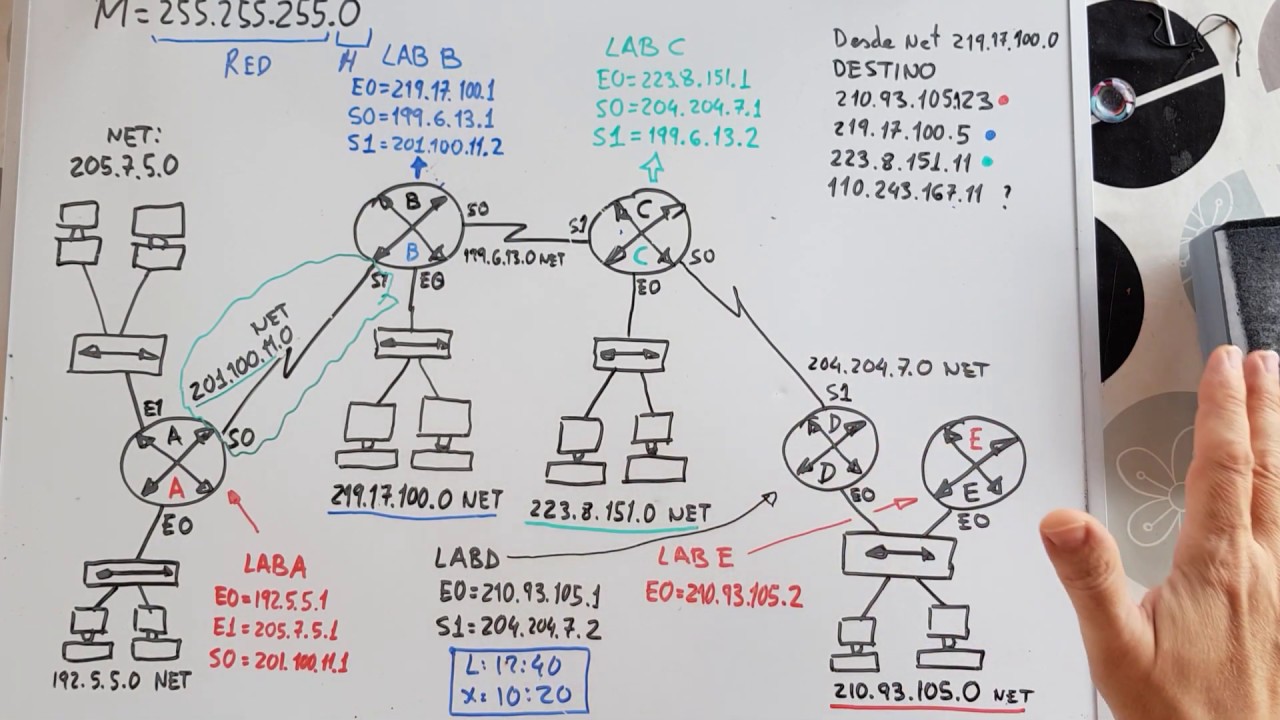 M = 255.255.255.0
RED H
LAB B
E0=219.17.100.1
S0=199.6.13.1
S1=201.100.11.2
LAB C
E0=223.8.151.1
S0=204.204.7.1
S1=199.6.13.2
Desde Net 219.17.100.0
DESTINO
210.93.105.123
219.17.100.5
223.8.151.11
110.243.167.11 ?
NET:
205.7.5.0
B
B
S0
S1
E0
199.6.13.0 NET
S1
C
C
S0
E0
NET
201.100.11.0
E1
A
A
S0
E0
204.204.7.0 NET
S1
D
D
E0
E
E
E0
219.17.100.0 NET
223.8.151.0 NET
LAB A
E0=192.5.5.1
E1=205.7.5.1
S0=201.100.11.1
192.5.5.0 NET
LAB D
E0=210.93.105.1
S1=204.204.7.2
LAB E
E0=210.93.105.2
L: 12:40
X: 10:20
210.93.105.0 NET